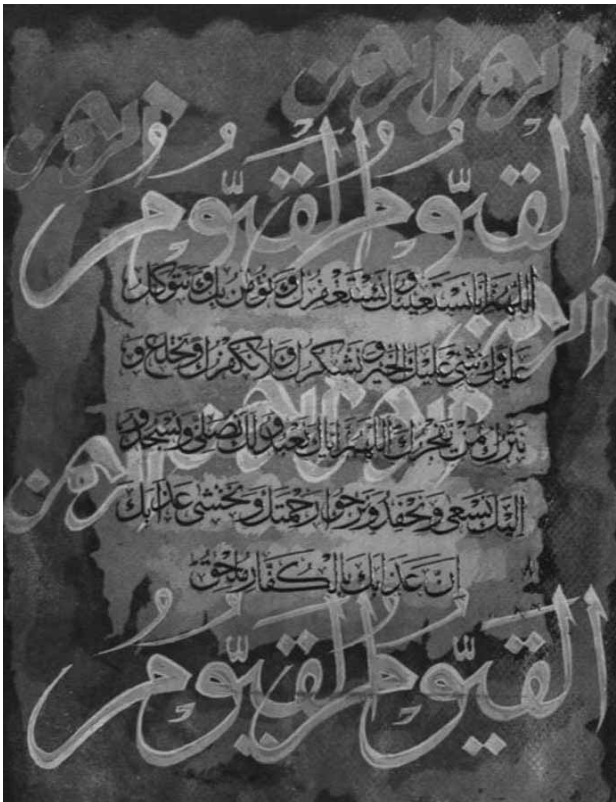 الرحمن الرحمن
الرحمن
القيّومُ القيّومُ
اللهم انا نستعينك و نستغفرك و نؤمن بك و نتوكل
عليك و نثنى عليك الخير و نشكرك و لا نكفرك و نخلع و
نترك من يفجرك اللهم اياك نعبد و لك نصلى و نسجد و
اليك نسعى و نحفد و نرجوا رحمتك و نخشى عذابك
ان عذابك بالكفار ملحق
القيّومُ القيّومُ